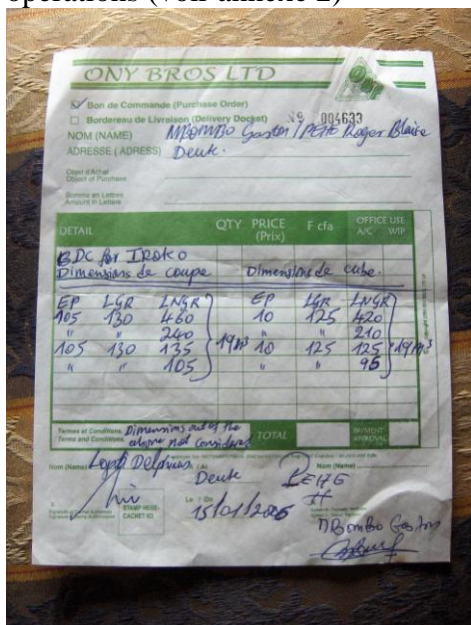 operations (voir annexe 2)
ONY BROS LTD
Bon de Commande (Purchase Order)
Bordereau de Livraison (Delivery Docket) Nº 004633
NOM (NAME) Mbombo Gaston / PETTE Roger Blaise
ADRESSE (ADRESS) Deuk.
Objet d'Achat
Object of Purchase
Somme en Lettres
Amount in Letters
DETAIL QTY PRICE (Prix) F cfa OFFICE USE A/C WIP
BDC for IROKO
Dimensions de coupe Dimensions de cube.
EP LGR LNGR EP LGR LNGR
105 130 460 10 125 420
" " 240 " " 210
105 130 135 19m3 10 125 125 19m3
" " 105 " " 95
Termes et Conditions. Dimensions out of the
Terms and Conditions. above not considered TOTAL PAYMENT APPROVAL
Nom (Name) Delphius Nom (Name)
Deuk
STAMP HERE- Le / On
CACHET ICI 15/01/2006
Mbombo Gaston